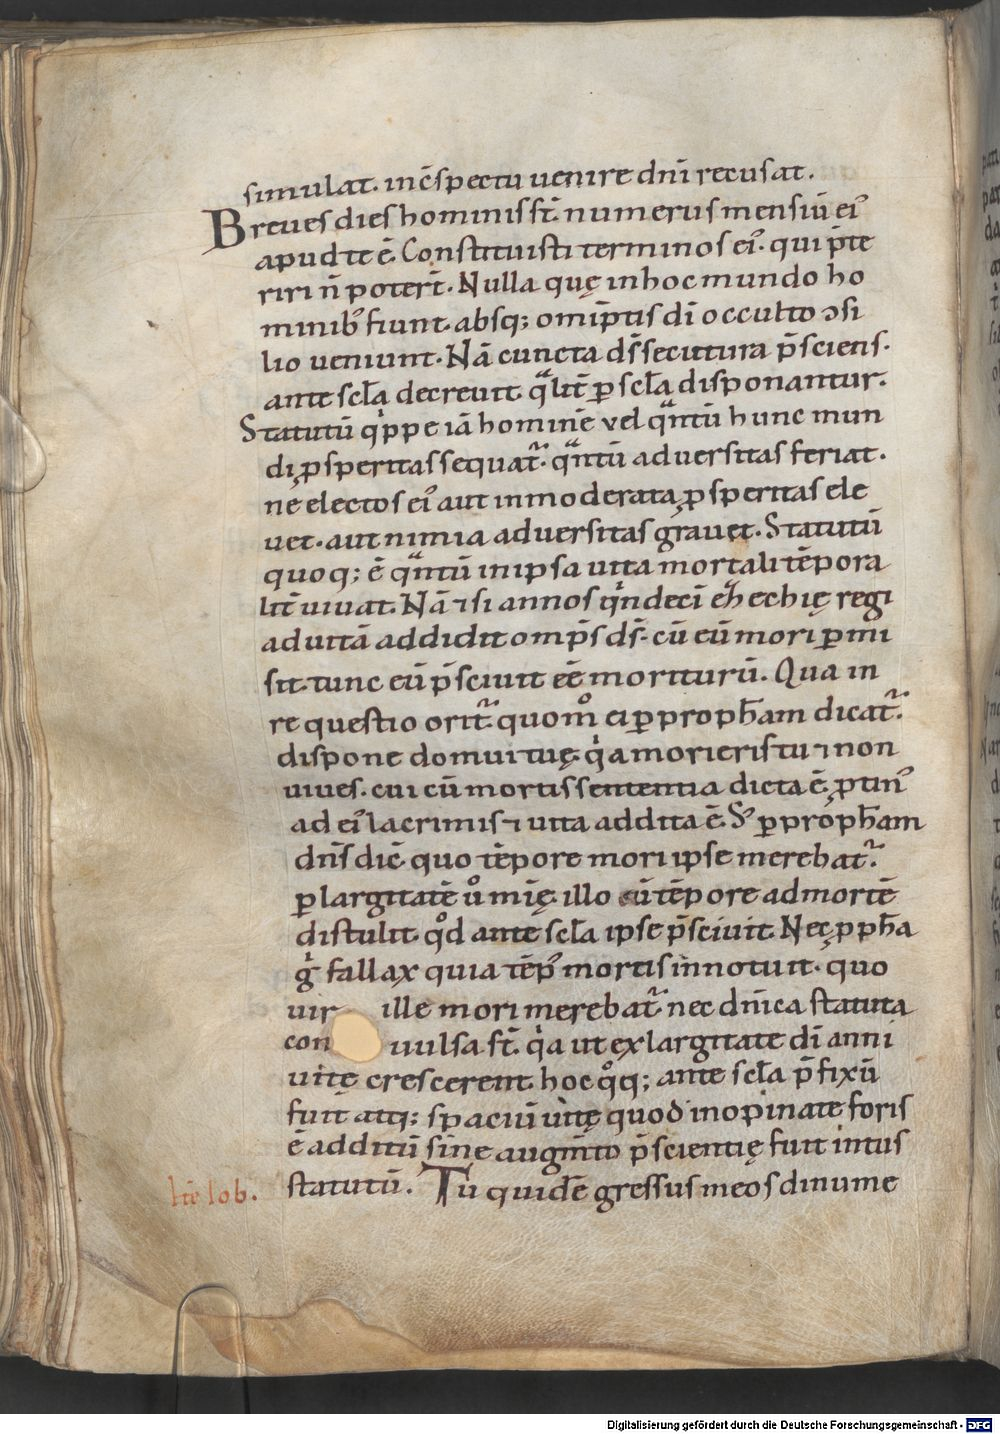 simulat. in c̄spectu uenire dn̄i recusat.
Breues dies hominis st̄. numerus mensiū ei᾿
apud te ē. Constituisti terminos ei᾿. qui p̄te
riri n̄ poter̄t. Nulla quę in hoc mundo ho
minib᾿ fiunt. absq; om̄ipt̄is dī occulto ɔsi
lio ueniunt. Nā cuncta ds̄ secutura p̄sciens.
ante scl̄a decreuit. qͣlit̄ ꝑ scl̄a disponantur.
Statutū qͥppe iā hominē vel qͣntū hunc mun
di ꝓsperitas sequat᷑. qͣntū aduersitas feriat.
ne electos ei᾿ aut inmoderata ꝓsperitas ele
uet. aut nimia aduersitas grauet. Statutū
quoq; ē qͣntū in ipsa uita mortali tēpora
lit̄ uiuat. Nā ⁊ si annos qͥndecī ezechię regi
ad uitā addidit omp̄s ds̄. cū eū mori ꝑmi
sit. tunc eū p̄sciuit eē moriturū. Qua in
re questio orit᷑. quom̊ ei ꝑ proph̄am dicat᷑.
dispone domui tuę. qͥa morieris tu ⁊ non
uiues. cui cū mortis sententia dicta ē. ꝓtin᾿
ad ei᾿ lacrimis ⁊ uita addita ē. S᾿ ꝑ proph̄am
dn̄s dic̄. quo tēpore mori ipse merebat᷑.
ꝑ largitatē uͦ mīę. illo eū tēpore ad mortē
distulit. qͦd ante scl̄a ipse p̄sciuit. Nec ꝓph̄a
gͥ fallax quia tēp᾿ mortis innotuit. quo
uir ille mori merebat᷑. nec dn̄ica statuta
conuulsa st̄. qͥa ut ex largitate dī anni
uitę crescerent. hoc qͦq; ante scl̄a p̄fixū
fuit atq; spaciū uitę quod inopinate foris
ē additū sine augm̄to p̄scientię fuit intus
statutū. Tū quidē gressus meos dinume
Itē Iob.
Digitalisierung gefördert durch die Deutsche Forschungsgemeinschaft - DFG